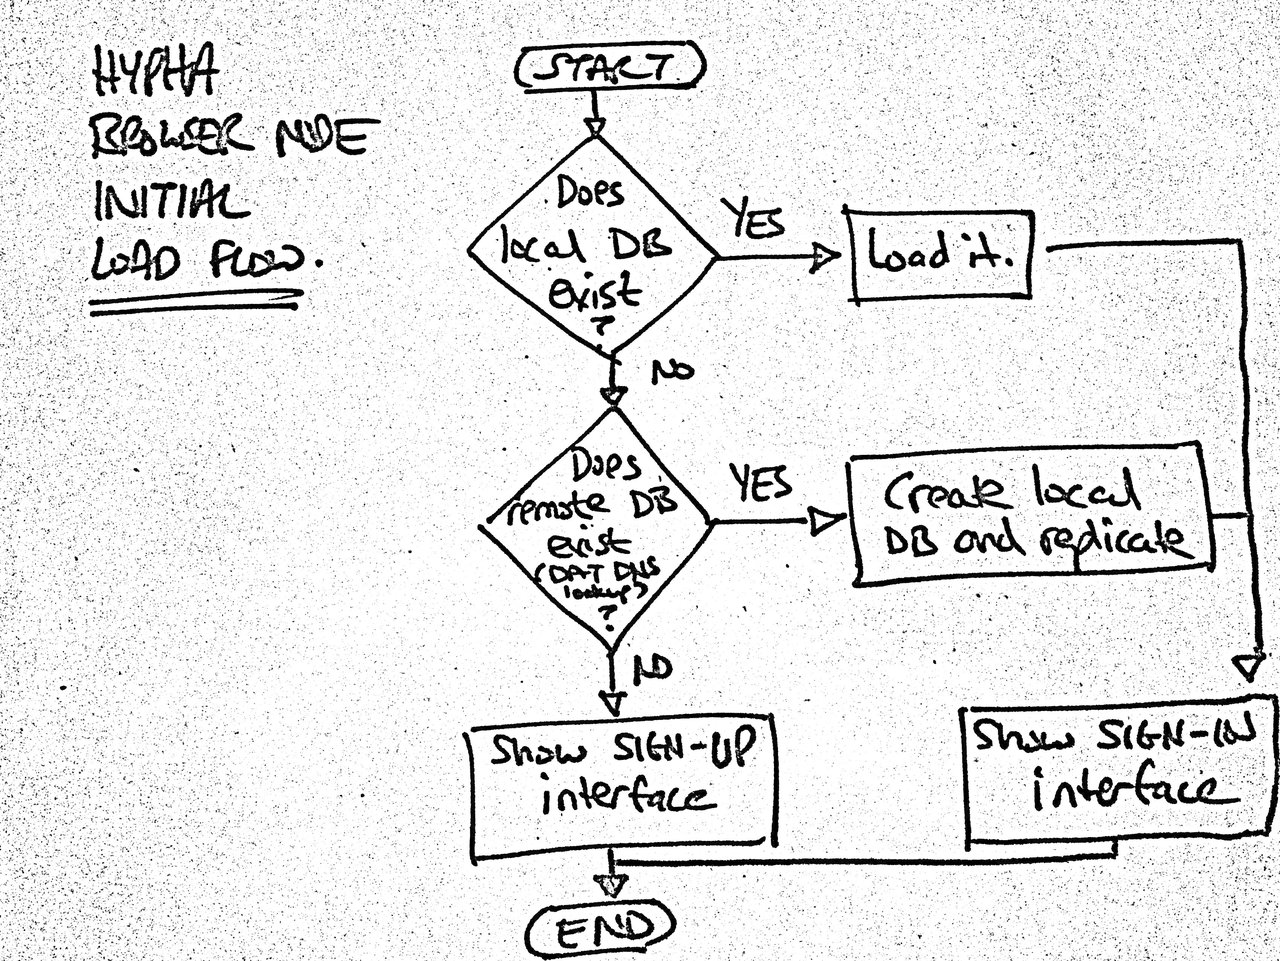 HYPHA
BROWSER NODE
INITIAL
LOAD FLOW.
START
Does
local DB
exist
?
YES
Load it.
NO
Does
remote DB
exist
(DAT DNS
lookup)
?
YES
Create local
DB and replicate
NO
Show SIGN-UP
interface
Show SIGN-IN
interface
END